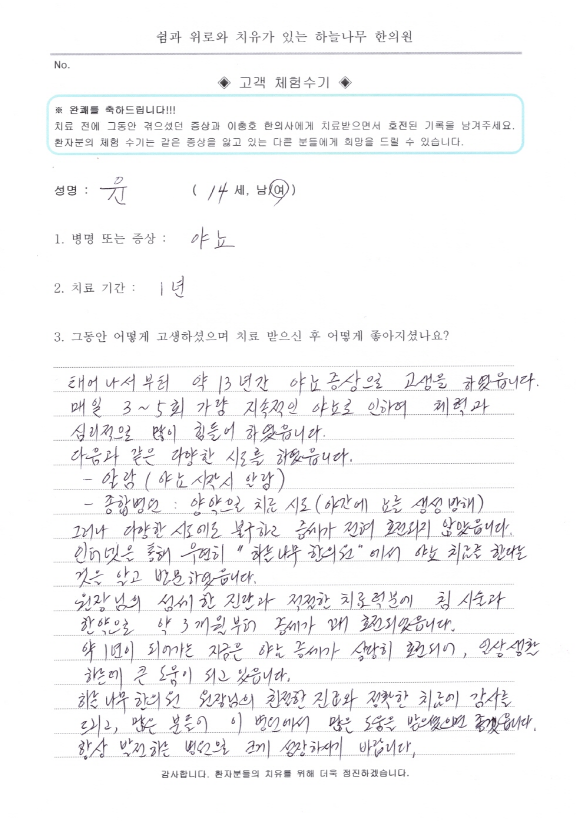 쉼과 위로와 치유가 있는 하늘나무 한의원
No.
◈ 고객 체험수기 ◈
※ 완쾌를 축하드립니다!!!
치료 전에 그동안 겪으셨던 증상과 이충호 한의사에게 치료받으면서 호전된 기록을 남겨주세요.
환자분의 체험 수기는 같은 증상을 앓고 있는 다른 분들에게 희망을 드릴 수 있습니다.
성명 : 윤 ( 14 세, 남/여 )
1. 병명 또는 증상 : 야뇨
2. 치료 기간 : 1년
3. 그동안 어떻게 고생하셨으며 치료 받으신 후 어떻게 좋아지셨나요?
태어나서부터 약 13년간 야뇨증상으로 고생을 하였읍니다.
매일 3~5회 가량 지속적인 야뇨로 인하여 체력과
심리적으로 많이 힘들어 하였읍니다.
다음과 같은 다양한 시도를 하였읍니다.
- 알람 (야뇨 시작시 알람)
- 종합병원 : 양약으로 치료 시도 (야간에 뇨를 생성 방해)
그러나 다양한 시도에도 불구하고 증세가 전혀 호전되지 않았읍니다.
인터넷을 통해 우연히 "하늘나무 한의원"에서 야뇨 치료를 한다는
것을 알고 방문하였읍니다.
원장님의 섬세한 진단과 적절한 치료덕분에 침 시술과
한약으로 약 3개월부터 증세가 꽤 호전되었읍니다.
약 1년이 되어가는 지금은 야뇨 증세가 상당히 호전되어, 일상생활
하는데 큰 도움이 되고 있읍니다.
하늘나무한의원 원장님의 친절한 진료와 정확한 치료에 감사를
드리고, 많은 분들이 이 병원에서 많은 도움을 받으셨으면 좋겠읍니다.
항상 발전하는 병원으로 크게 성장하시기 바랍니다.
감사합니다. 환자분들의 치유를 위해 더욱 정진하겠습니다.